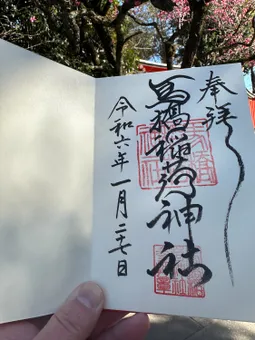 奉拝
馬橋稲荷神社
令和六年一月二十七日